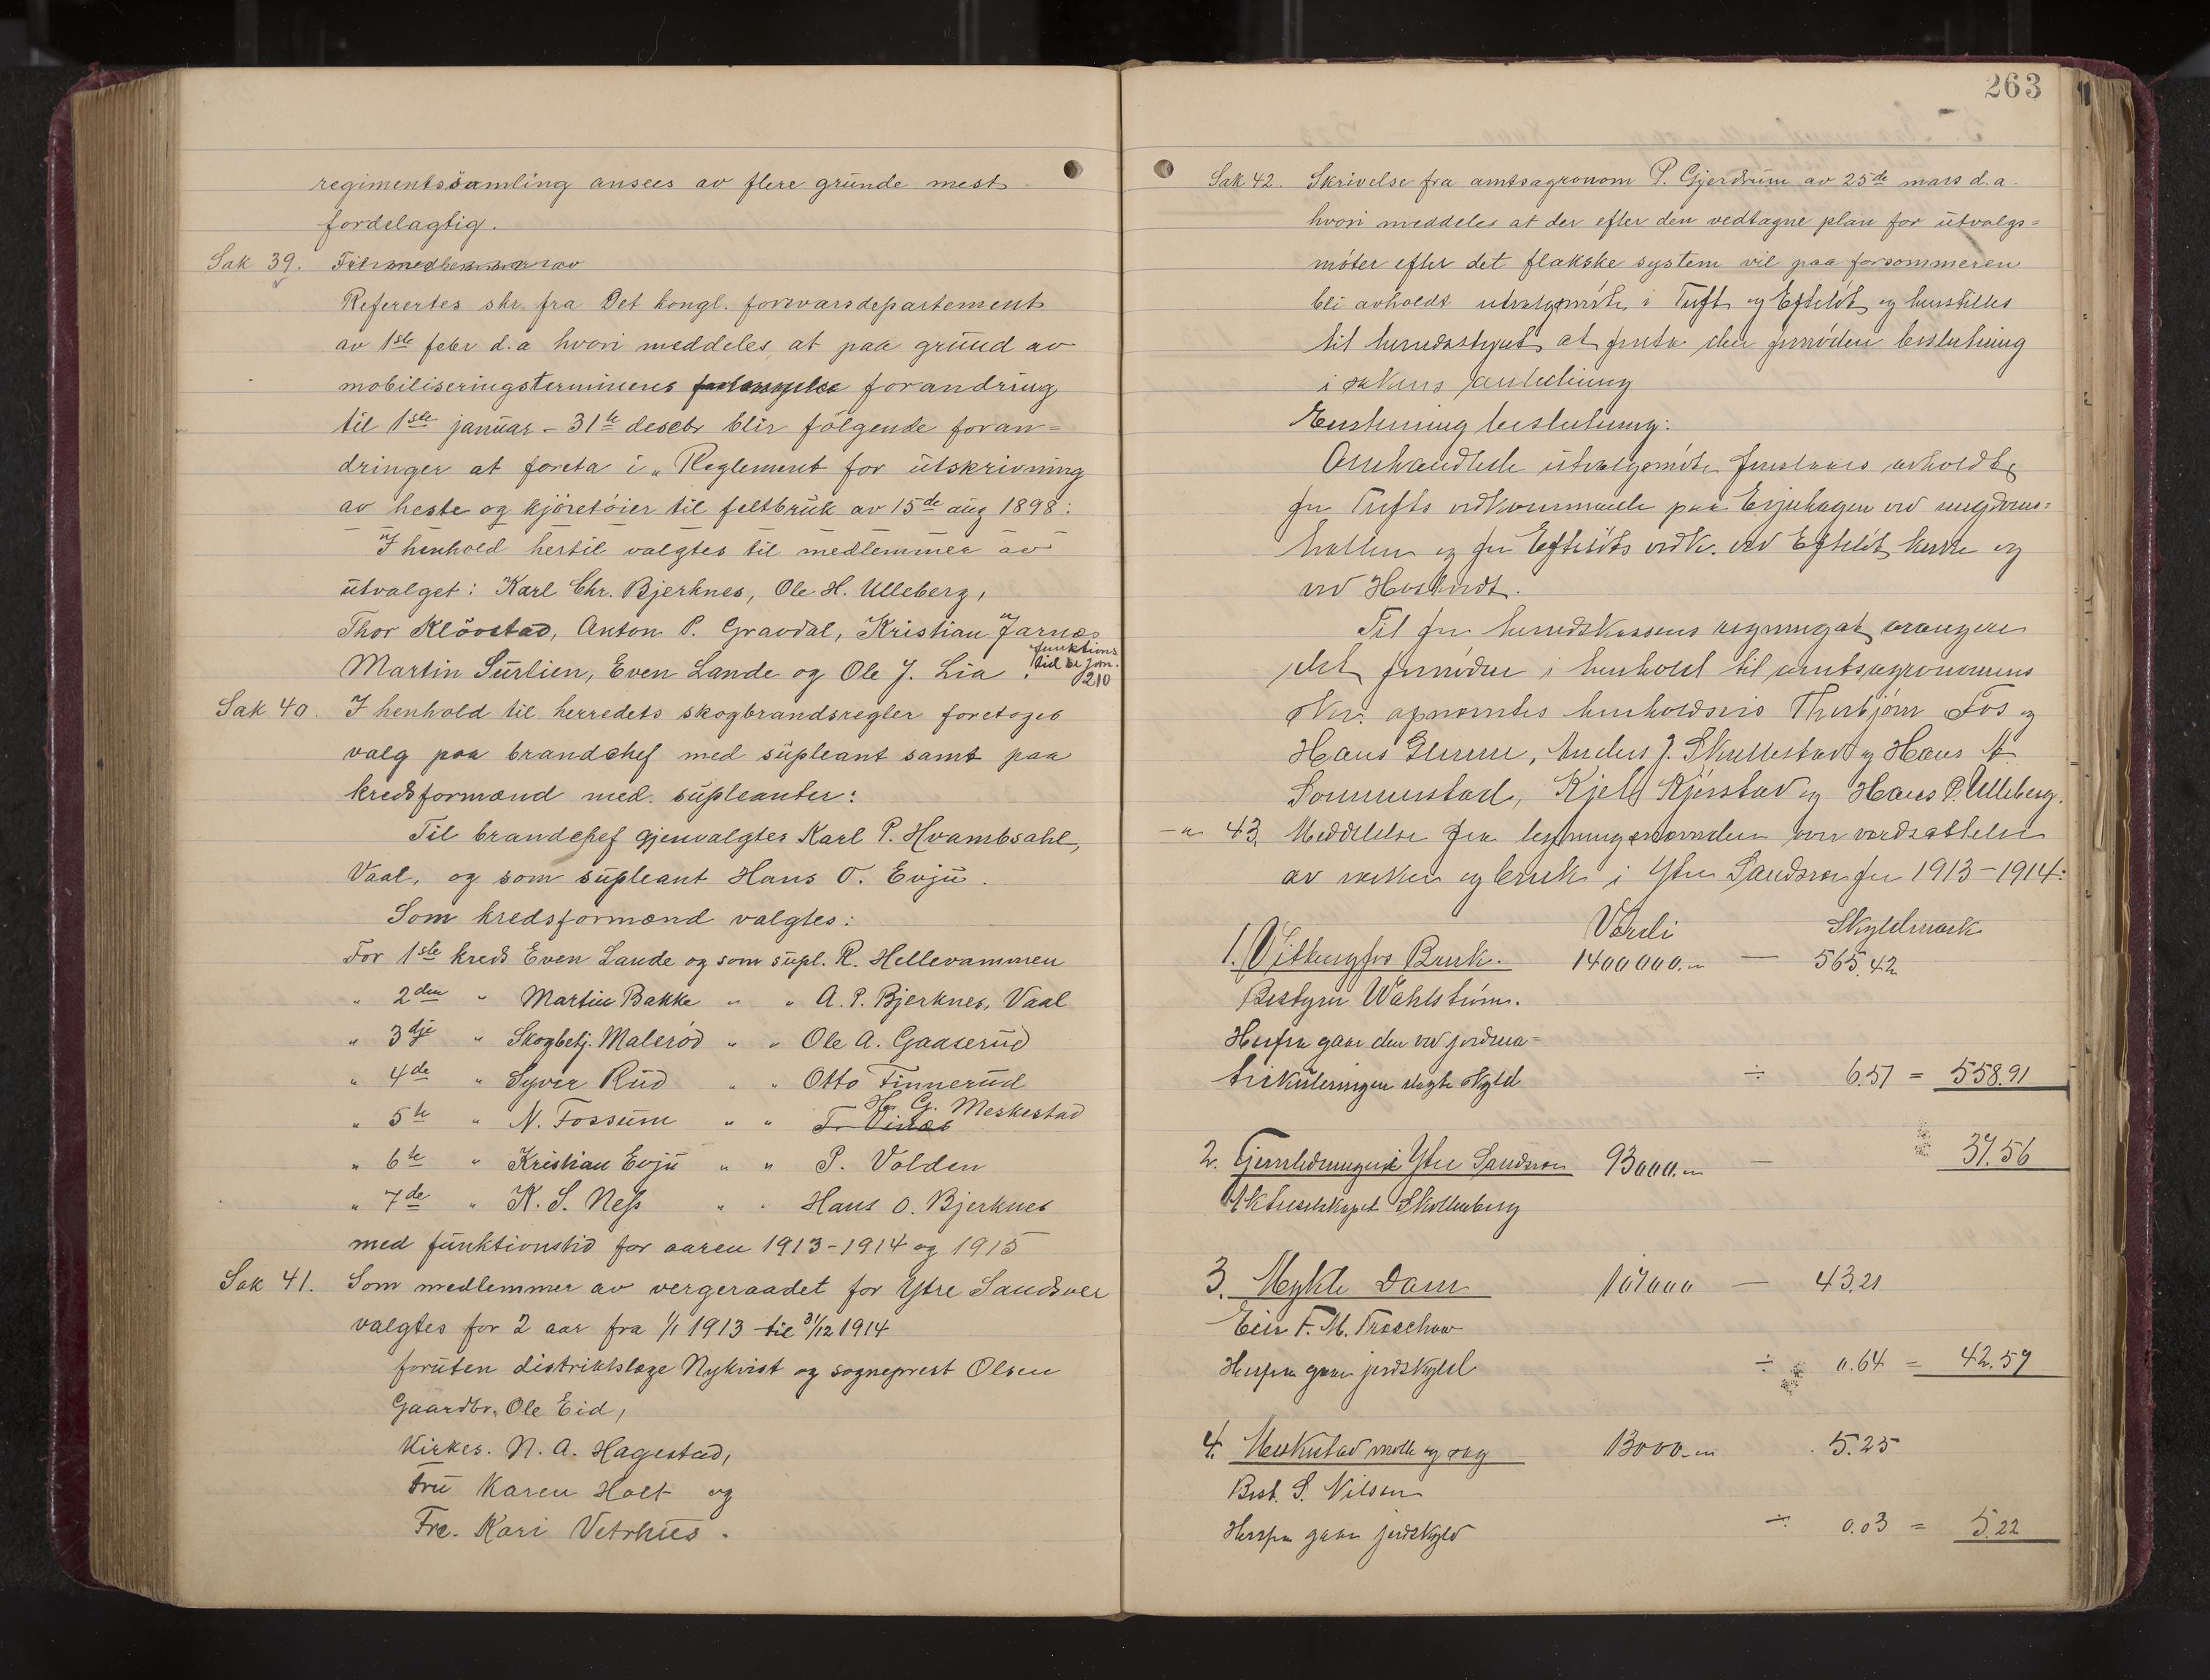 regimentssamling ansees av flere grunde mest
fordelagtig.
Sak 39.
Referertes skr. fra Det kongl. forsvarsdepartement
av 1ste febr d.a hvori meddeles at paa grund av
mobiliseringsterminens forandring
til 1ste januar – 31te desebr blir følgende foran=
dringer at foreta i „Reglement for utskrivning
av heste og kjøretøier til feltbruk av 15de aug 1898:
I henhold hertil valgtes til medlemmer av
utvalget: Karl Chr. Bjerknes, Ole H. Ulleberg,
Thor Kløvstad, Anton P. Gravdal, Kristian Jarnæs
Martin Surlien, Even Lande og Ole J. Lia.
funktions
tid se jorn.
210
Sak 40. I henhold til herredets skogbrandsregler foretoges
valg paa brandchef med supleant samt paa
kredsformænd med supleanter:
Til brandchef gjenvalgtes Karl P. Hvambsahl,
Vaal, og som supleant Hans O. Evju.
Som kredsformænd valgtes:
For 1ste kreds Even Lande og som supl. R. Hellevammen
„ 2den „ Martin Bakke „ „ A. P. Bjerknes, Vaal
„ 3dje „ Skogbetj. Malerød „ „ Ole A. Gaaserud
„ 4de „ Syver Rud „ „ Otto Finnerud
„ 5te „ N. Fossum „ „ G. Meskestad
„ 6te „ Kristian Evju „ „ P. Volden
„ 7de „ K. S. Ness „ „ Hans O. Bjerknes
med funktionstid for aaren 1913–1914 og 1915
Sak 41. Som medlemmer av vergeraadet for Ytre Sandsver
valgtes for 2 aar fra 1/1 1913 til 31/12 1914
foruten distriktslæge Nykvist og sogneprest Olsen
Gaardbr. Ole Eid,
Kirkes. N. A. Hagestad,
Fru Karen Holt og
Frk. Kari Vetrhus.
263
Sak 42. Skrivelse fra amtsagronom P. Gjerdrum av 25de mars d.a.
hvori meddeles at der efter den vedtagne plan for utvalgs=
møter efter det flakske system vil paa forsommeren
bli avholdt utvalgsmøte i Tuft og Efteløt og henstilles
til herredsstyret at fatte den fornødne beslutning
i sakens anledning
Enstemmig beslutning:
Omhandlede utvalgsmøte foreslaaes avholdt
for Tufts vedkommende paa Evjuhagen ved ungdoms=
hallen og for Efteløts vedk. ved Efteløt kirke og
ved
Til for herredskassens regning at arrangere
det fornødne i henhold til amtsagronomens
skr. opnævntes henholdsvis Thorbjørn Fos og
Hans Glenne, Anders J. Skullestad og Hans A.
Sommerstad, Kjel Kjørstad og Hans P. Ulleberg.
–„– 43. Meddelelse fra ligningsnævnden over verdsættelse
av verker og bruk i Ytre Sandsver for 1913–1914:
Værdi Skyldmark
1. Vittingfos Bruk. 1400000.– — 565.42
Bestyrer Wahlstrøm.
Herfra gaar den ved jordma=
trikuleringen ilagte skyld ÷ 6.51 = 558.91
2. Fjernledningen i Ytre Sandsver 93000.– — 37.56
Aktieselskapet Skollenborg
3. Mykle Dam 107000 — 43.21
Eier F. M. Treschow
Herfra gaar jordskyld ÷ 0.64 = 42.57
4. Meskestad mølle og sag 13000.– 5.25
Best. S. Nilsen
Herfra gaar jordskyld ÷ 0.03 = 5.22